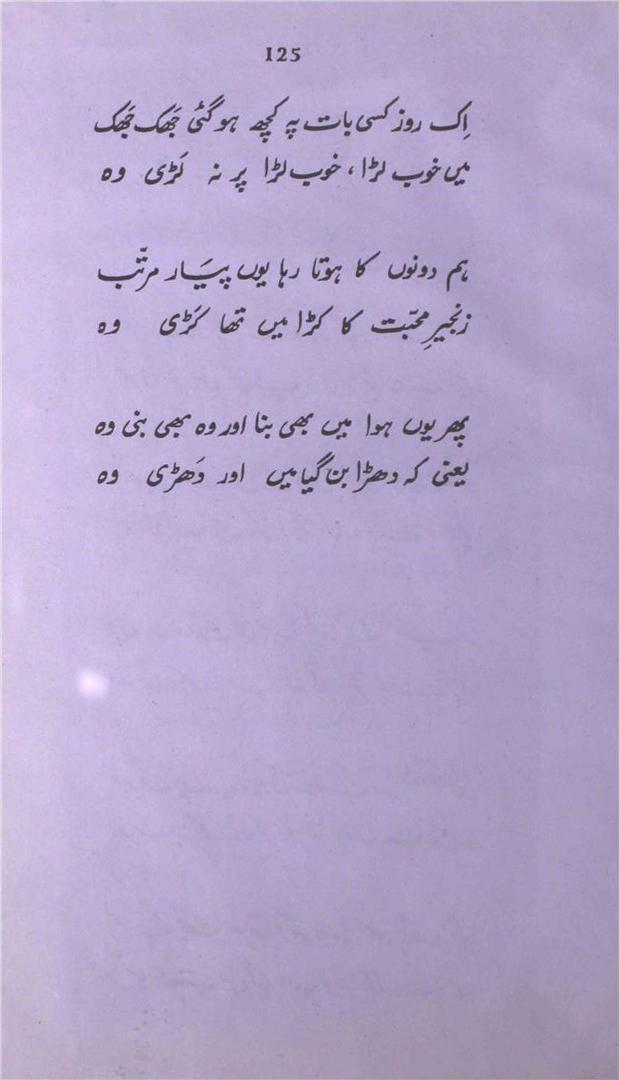 125
اِک روز کسی بات پہ کچھ ہو گئی جَھک جَھک
میں خوب لڑا، خوب لڑا پر نہ لَڑی وہ
ہم دونوں کا ہوتا رہا یوں پیَار مرتّب
زنجیرِ محبّت کا کڑا میں تھا کَڑی وہ
پھر یوں ہوا میں بھی بنا اور وہ بھی بنی وہ
یعنی کہ دھڑا بن گیا میں اور دَھڑی وہ